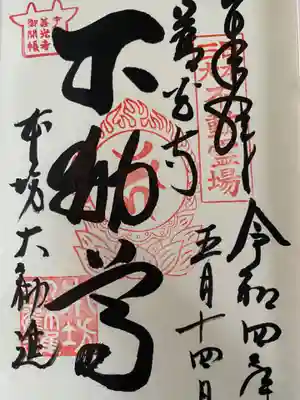 奉拝 令和四年
五月十四日
善光寺
不動尊
本坊大勧進
不動霊場
善光寺
御開帳